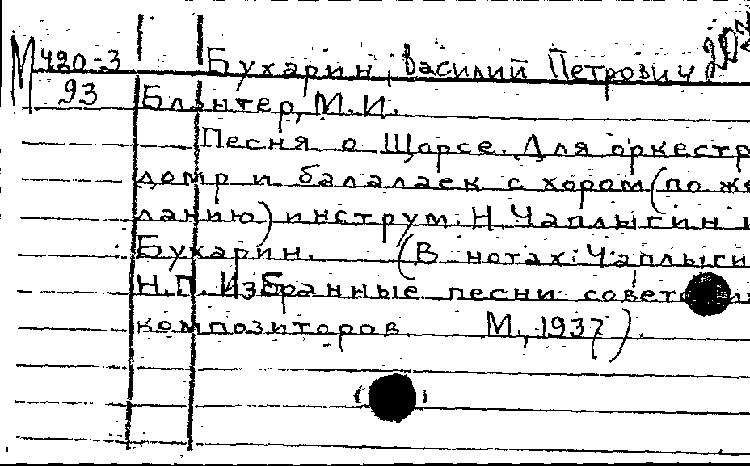 М 420-3 Бухарин, Василий Петрович
93 Блантер, М.И.
Песня о Щорсе. Для оркестр
домр и балалаек с хором (по же
ланию) инструм. Н. Чаплыгин и
Бухарин. (В нотах: Чаплыги
Н.П. Избранные песни совет
композиторов. М., 1937).